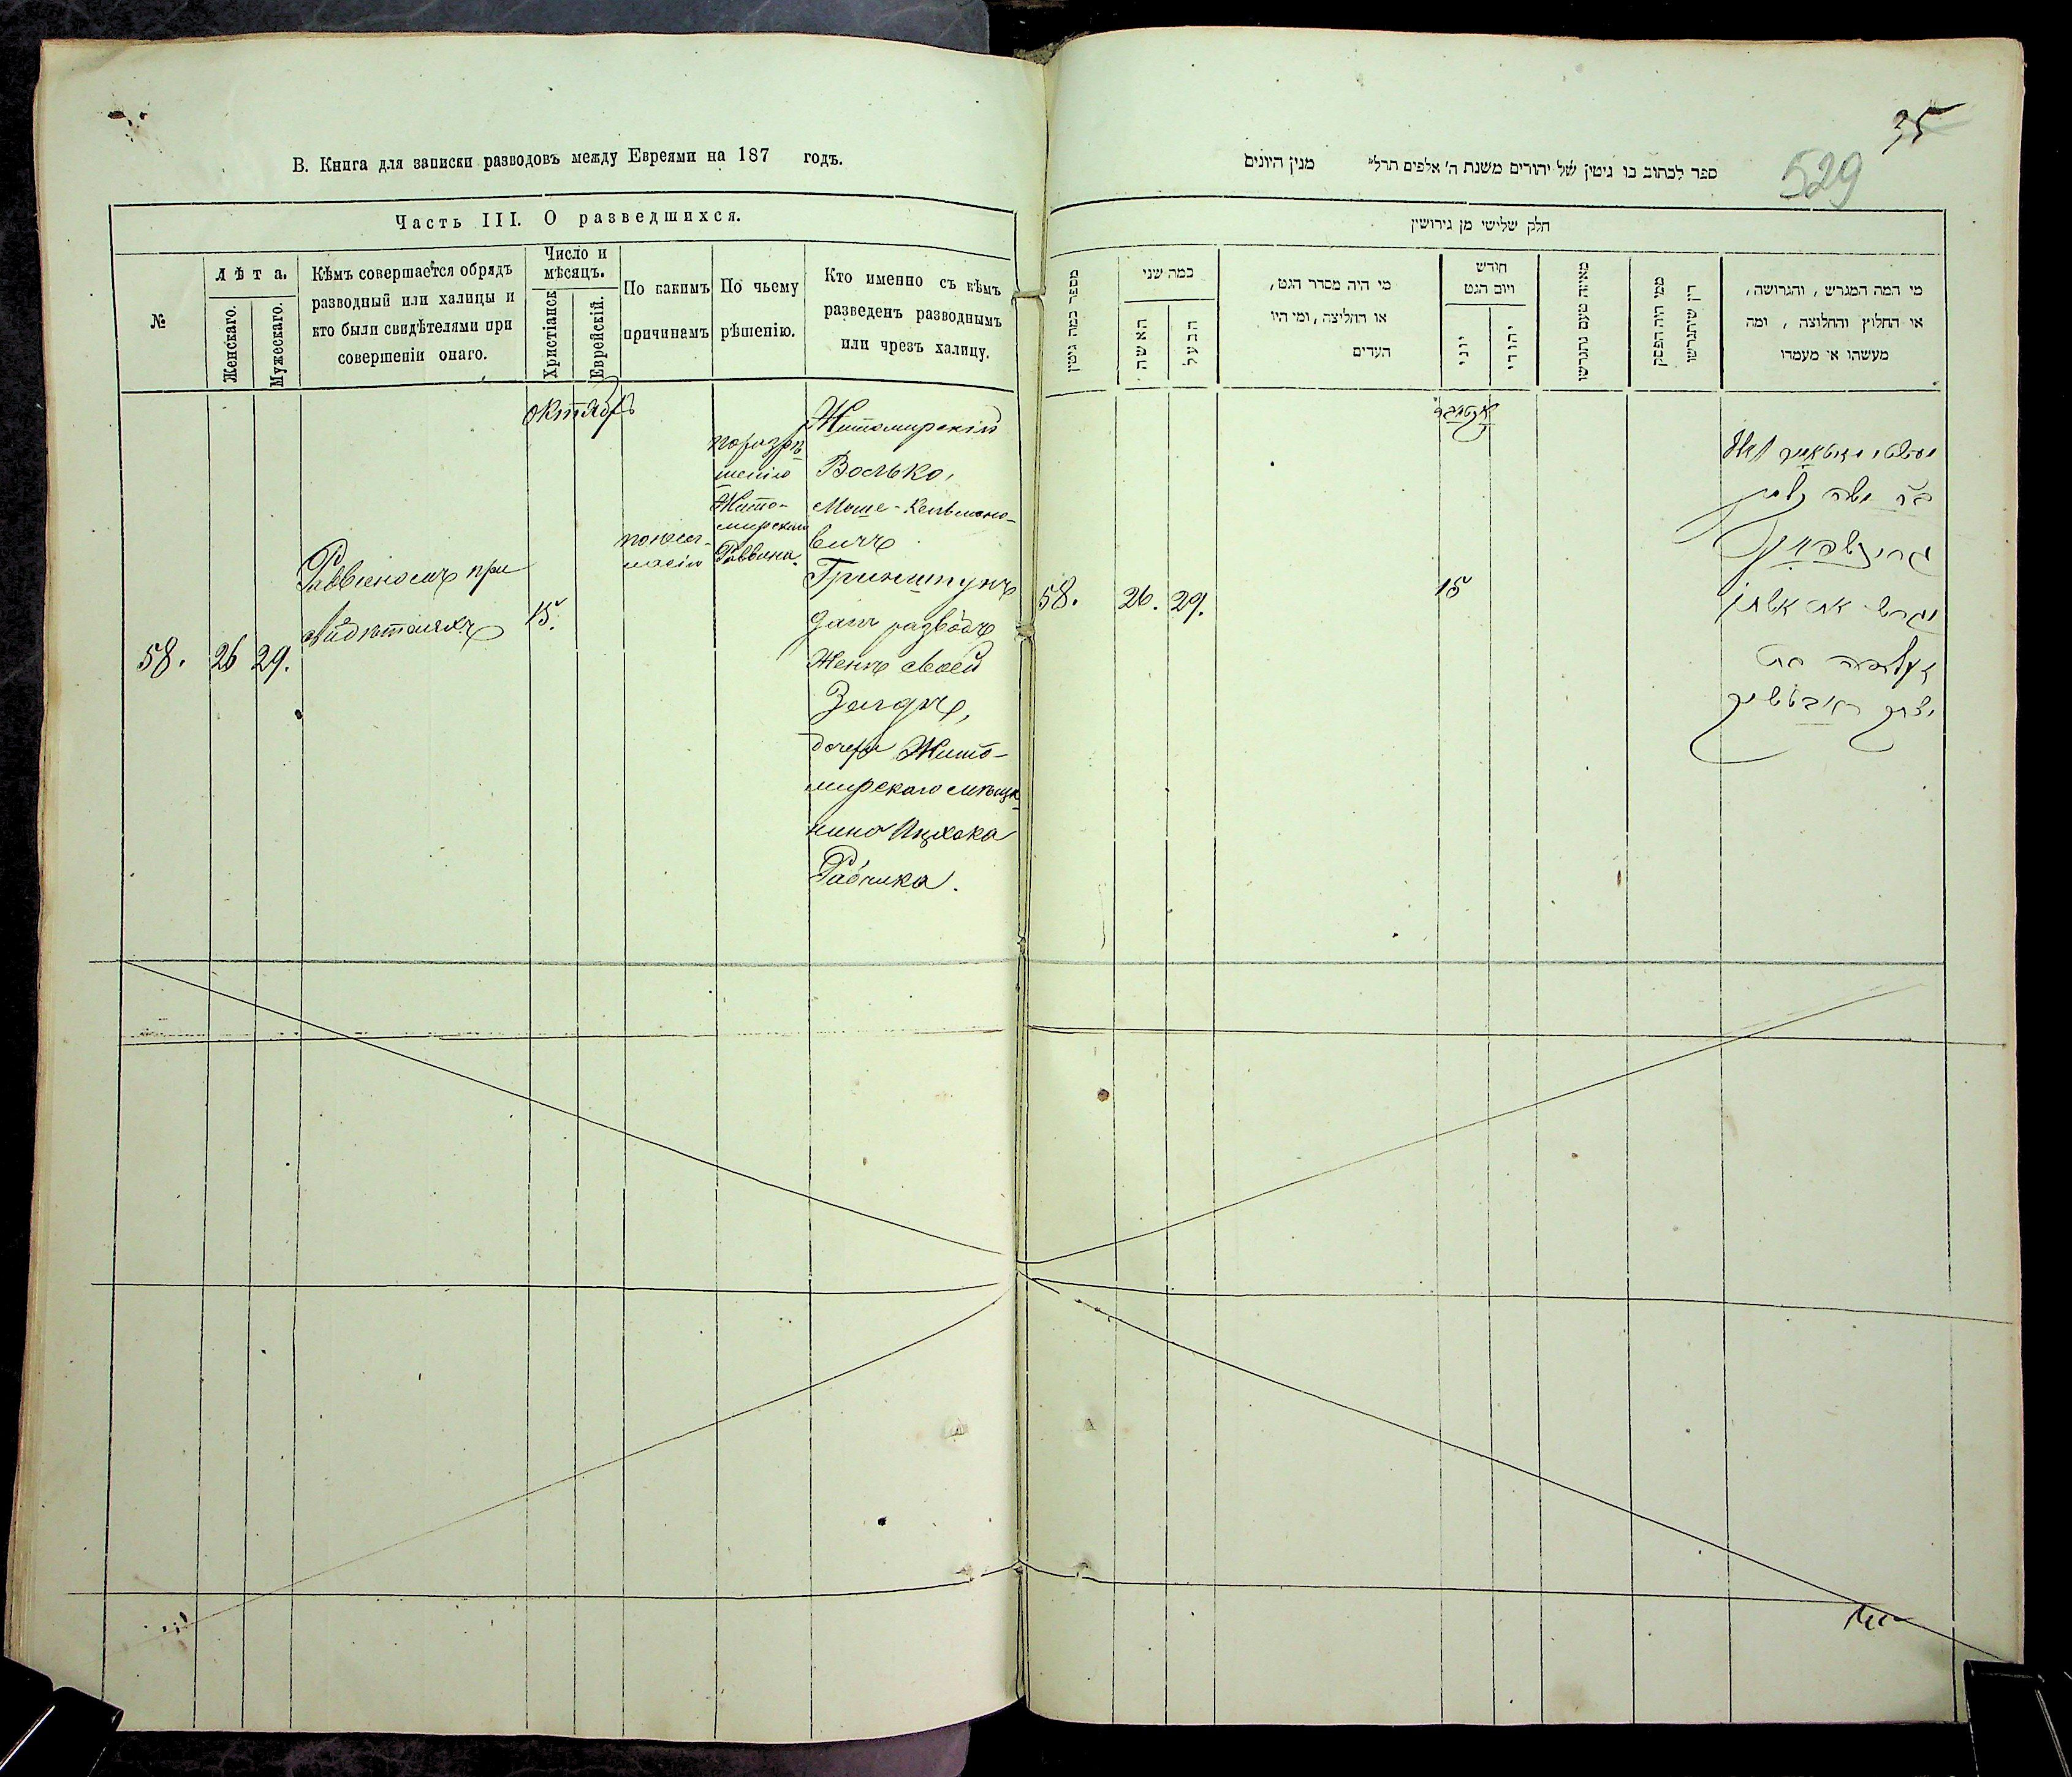 В. Книга для записки разводовъ между Евреями на 187 годъ.
Часть III. О разведшихся.
№
Лѣта.
Женскаго.
Мужескаго.
Кѣмъ совершается обрядъ
разводный или халицы и
кто были свидѣтелями при
совершеніи онаго.
Число и
мѣсяцъ.
Христіанск
Еврейскій.
По какимъ
причинамъ
По чьему
рѣшенію.
Кто именно съ кѣмъ
разведенъ разводнымъ
или чрезъ халицу.
октябрь
58.
26
29.
Раввиномъ при
свидѣтеляхъ
15.
по несог-
ласію
по разрѣ-
шенію
Жито-
мирскаго
Раввина.
Житомирскій
Волько,
Моше-Кельмано-
вичъ
Гринштунъ
далъ разводъ
женѣ своей
Зелдѣ,
дочери Жито-
мирскаго мѣща-
нина Ицхока
Рабчика.
35
529
ספר לכתוב בו גיטין של יהודים משנת ה' אלפים תרל" מנין היונים
חלק שלישי מן גירושין
מספר כמה גיטין
כמה שני
האשה
הבעל
מי היה מסדר הגט,
או החליצה, ומי היו
העדים
חודש
ויום הגט
יוני
יהודי
מאיזה טעם נתגרשו
ממי היה הפסק
דין שיתגרשו
מי המה המגרש, והגרושה,
או החלוץ והחלוצה, ומה
מעשהו או מעמדו
58.
26.
29.
15
משה
וגרש את אשתו
בת
יצחק ראבטשיק